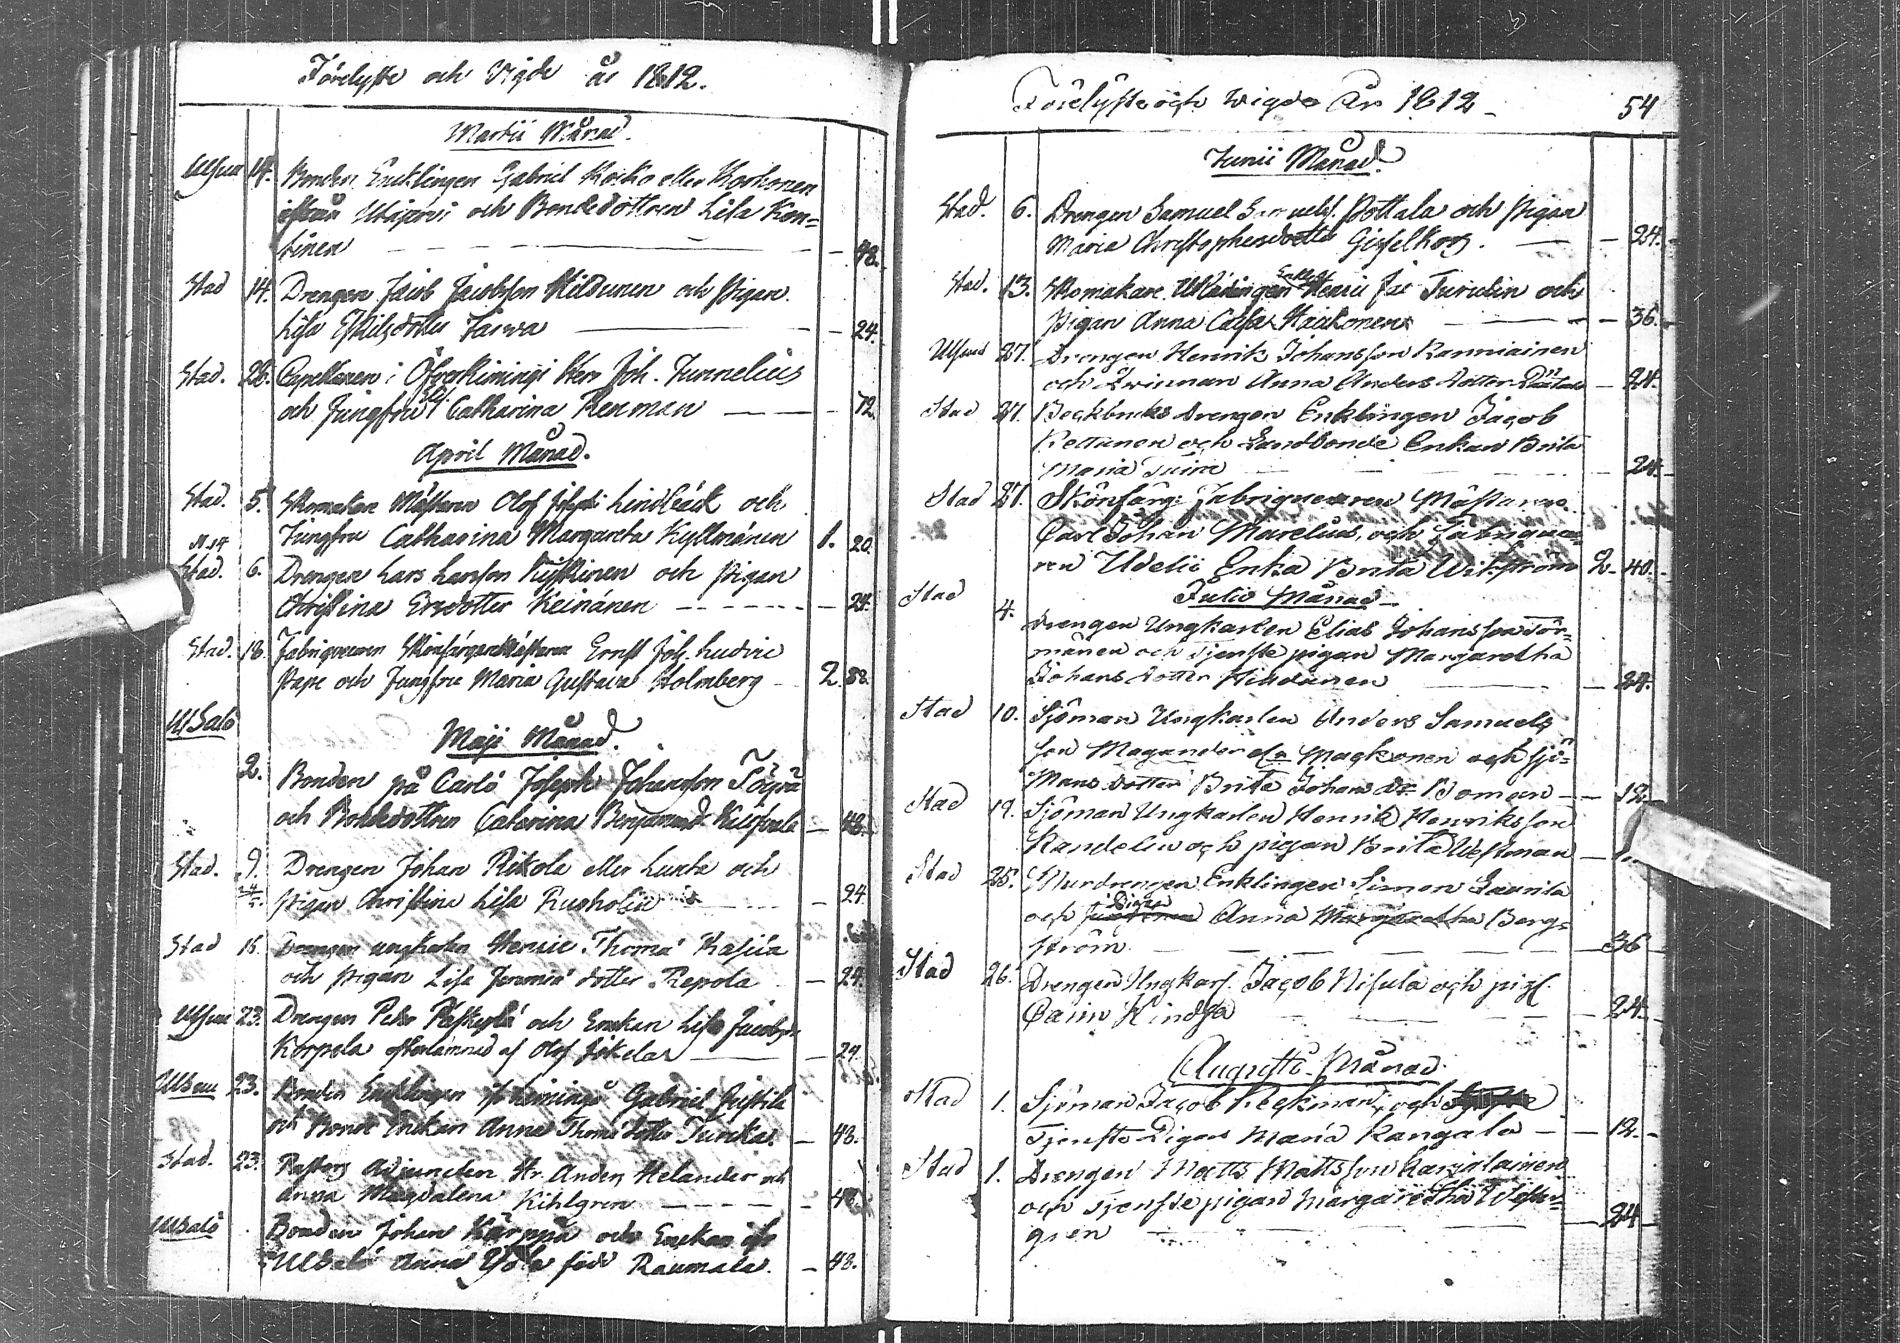 Förelyste och Vigde år 1812.
Martii Månad.
14. Bonden Encklingen Gabriel Koisko eller Korhonen
ifrån Utajärvi och Bondedottren Lisa Kon-
tinen — 48.
Stad 14. Drengen Jacob Jacobsson Hildunen och Pigan
Lisa Eskilsdotter Sarwa — 24.
Stad. 26. Capellanen i Öfverkimingi Herr Joh. Junnelius
och Jungfru Catharina Renman — 72.
April Månad.
Stad. 5. Skomakare Mästaren Olof Josephi Lindbäck och
Jungfru Catharina Margareta Kyllmänen 1. 20.
Stad. 6. Drengen Lars Larsson Kyskinen och Pigan
Christina Ersdotter Keinänen — 24.
Stad. 18. Fabriqueuren Skönfärgare Mästaren Ernst Joh. Ludvic
Pape och Jungfru Maria Gustava Holmberg — 2. 88.
Uhalo
Maji Månad.
2. Bonden på Carlö Joseph Johansson Töyrä
och Bondedottren Caterina Benjamind. — 48.
Stad. 9. Drengen Johan Rekola eller Lunta och
Pigan Christina Lisa — 24
Stad 16. Drengen ungkarlen Henric Thomæ Kasila
och Pigan Lisa Jeremiæ dotter Repola — 24.
23. Drengen Petter och Enckan Lisa Jacobsd.
Korpela efterlämnad af Olof Jokelas — 24.
23. Bonden Encklingen if. Kiminge Gabriel
och Bonde Enckan Anna Thoms dotter Turckas — 48.
Stad. 23. Pastors Adjuncten Hr. Anders Helander och
Anna Magdalena Kihlgren — 48
Uhalo Bonden Johan Kärppä och Enckan ifr
Anna född Raumala. — 48.
Förelyste och Wigde År 1812 — 54
Junii Månad.
Stad. 6. Drengen Samuel Samuelss. Pottala och Pigan
Maria Christophersdotter Gisselkors. — 24.
Stad. 13. Skomakare Enkl. Henric Jac Turulin och
Pigan Anna Caisa Haukonen — 36.
27. Drengen Henrik Johansson Ranniainen
och Qvinnan Anna Anders dotter — 24.
Stad 27. Beckbruks drengen Enklingen Jacob
Kettunen och Landbonde Enkan Brita
Maria — 24.
Stad 27. Skönfärg. Fabriqueuren Mästaren
Carl Johan Marelius, och Fabriqueu-
ren Udelii Enka Brita Wikström 2. 40.
Julii Månad —
Stad 4. Drengen Ungkarlen Elias Johansson Tör-
mänen och tjenste pigan Margaretha
Johans dotter Hildunen — 24.
Stad 10. Sjöman Ungkarlen Anders Samuels
son Magander el. Mackonen och Sjö-
mans dotter Brita Johans Dr Boman — 12
Stad 19. Sjöman Ungkarlen Henrik Henriksson
Kandelin och pigan Brita Westman —
Stad 25. Murdrengen Enklingen Simon Laurila
och Pigan Anna Margaretha Berg-
ström — 36
Stad 26. Drengen Ungkarl. Jacob Nisula och pig.
Carin — 24.
Augusti Månad.
Stad 1. Sjöman Jacob Heckman, och
Tjenste Pigan Maria Kangala — 12.
Stad 1. Drengen Matts Mattsson Karjalainen
och tjenste pigan Margaretha Wester-
gren — 24